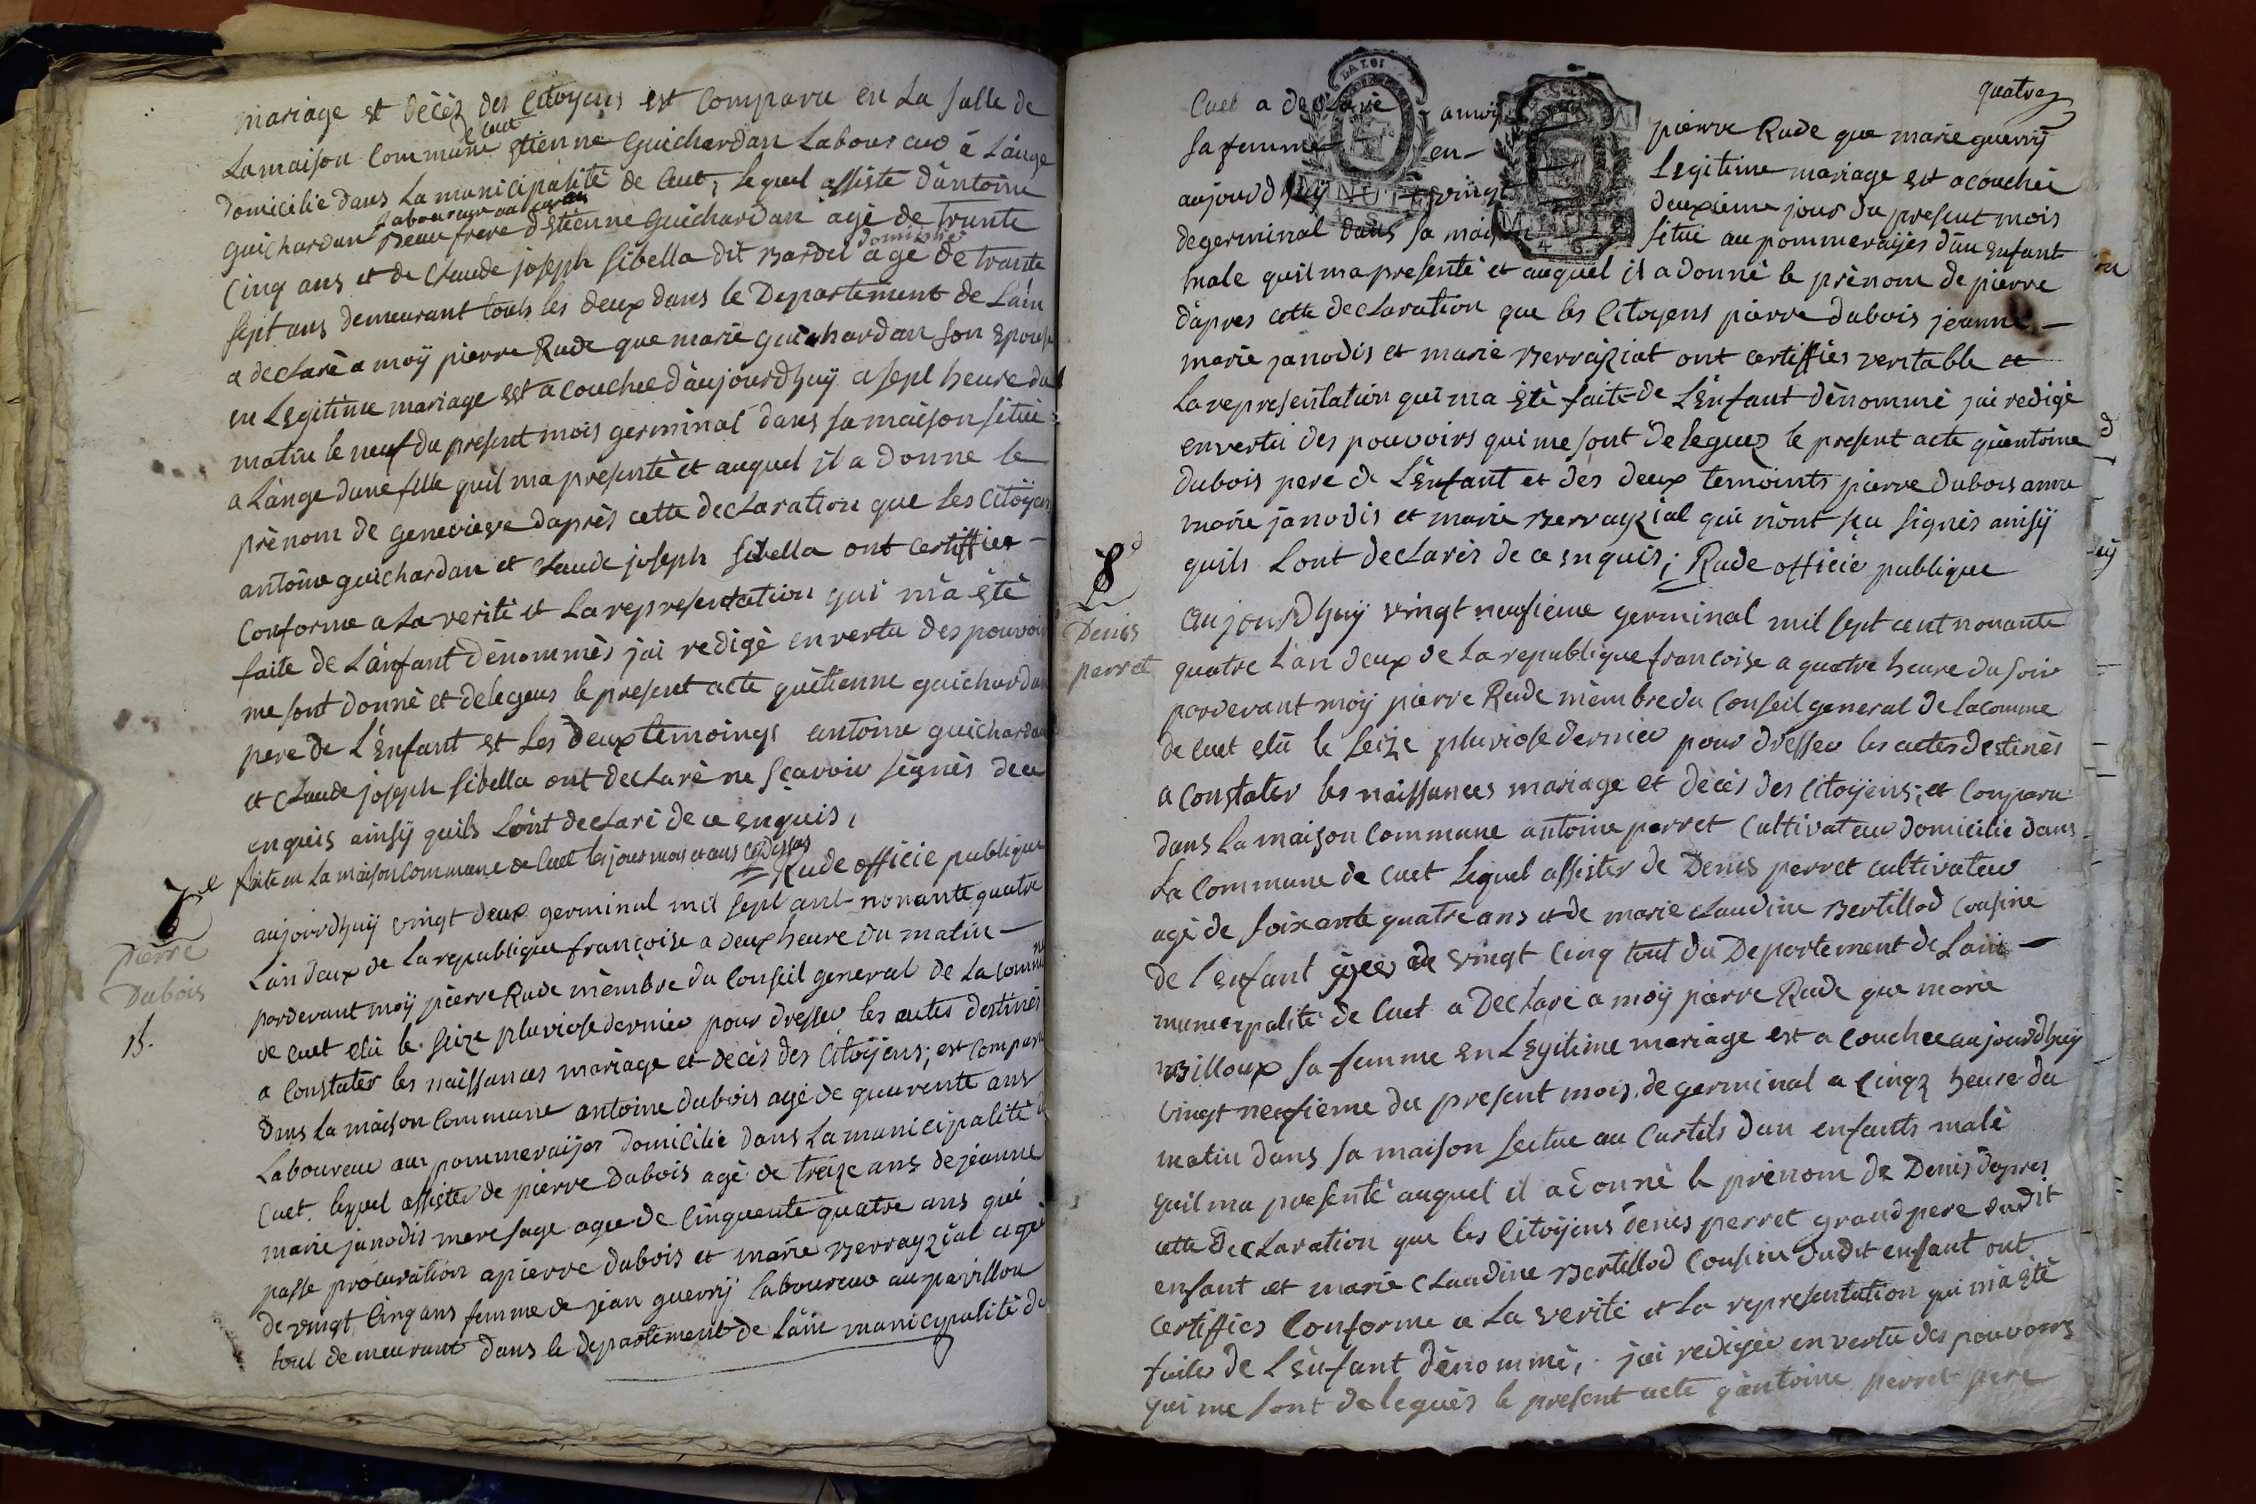 mariage et dècèz des Citoyens est Comparu en La salle de
de cuet
Lamaison Commune Etienne Guichardan Laboureur à Lange
domicilié dans La municipalité de Cuet, lequel assiste d'antoine
Laboureur au
guichardan Beau frere d'Etienne Guichardan agé de trante
domicilié
Cinq ans et de Claude joseph Sibella dit Bardel agé de trante
sept ans demeurant touts les deux dans le Departement de Lain
a declaré a moÿ pierre Rude que marie guichardan son Epouse
en Legitime mariage est acouchee d'aujourdhuÿ a sept heure du
matin le neuf du present mois germinal dans sa maison situé
a Lange dune fille quil ma presenté et auquel il a donne le
prènom de genevieve daprès cette declaration que les Citoÿens
antoine guichardan et Claude joseph Sibella ont certiffier
Conforme a La verité et La representation qui m'a été
faite de L'anfant dénommès jai redigè en vertu des pouvoir
me sont donné et delegues le present acte quetienne guichardan
pere de L'Enfant et Les deux temoings antoine guichardan
et Claude joseph Sibella ont declaré ne sçavoir signès de ce
enqueis ainsÿ quils Lont declaré de ce enquis,
faite en La maison Commune de Cuet les jour mois et ans Cydessus
Rude officie publique
7e
pierre
Dubois
aujourdhuÿ vingt deux germinal mil sept cent nonante quatre
Lan deux de La republique françoise a deux heure du matin
pardevant moÿ pierre Rude mèmbre du Conseil general de La Commune
de cuet elû le seize pluviose dernier pour dresser les actes destinés
a Constater les naissances mariage et decès des Citoÿens; est Comparu
dans La maison Commune antoine dubois agé de quarente ans
Laboureur aux pommeraijes domicilié dans La municipalité
Cuet. lequel assister de pierre dubois agé de treize ans de jeanne
marie janodis mere sage agee de Cinquente quatre ans qui
passe procuration a pierre dubois et marie Berrayzial agé
de vingt Cinq ans femme de jean guerrÿ laboureur au pavillon
tout demeurant dans le departement de Lain municipalité de
quatre
Cuet a declaré a moÿ pierre Rude que marie guerrÿ
sa femme en Legitime mariage est acouchée
aujourdhuÿ vingt deuxième jour du present mois
de germinal dans sa maison situé au pommeraijes d'un Enfant
male quil ma presenté et auquel il a donné le prènom de pierre
daprès cette declaration que les Citoyens pierre dubois jeanne
marie janodis et marie Berrayziat ont certiffiés veritable et
La representation qui ma été faite de L'Enfant dènommé jai redigé
en vertu des pouvoirs qui me sont delegues le present acte quantoine
dubois pere de L'Enfant et des deux temoints pierre dubois anne
marie janodis et marie Berrayzial qui n'ont sçu signès ainsÿ
quils Lont declarés de ce enquis; Rude officie publique
8e
Denis
perret
aujourdhuÿ vingt neufieme germinal mil sept cent nonante
quatre L'an deux de La republique françoise a quatre heure du soir
pardevant moÿ pierre Rude mèmbre du Conseil general de La comme
de Cuet elû le seize pluviose dernier pour dresser les actes destinés
a Constater les naissances mariage et decès des Citoyens; et Comparu
dans La maison Commune antoine perret Cultivateur domicilie dans
La Commune de Cuet Lequel assister de Denis perret cultivateur
agé de soixante quatre ans et de marie Claudine Bertillod Cousine
de l'enfant agee de vingt Cinq tout du Departement de Lain
municipalité de Cuet a Declaré a moÿ pierre Rude que marie
Billoux sa femme en Legitime mariage est acouchee aujourdhuÿ
vingt neufieme du present mois de germinal a Cinqz heure du
matin dans sa maison seitue au Curtils d'un enfants malè
quil ma presenté auquel il a donné le prènom de Denis daprès
cette declaration que les Citoÿens denis perret grand pere dudit
enfant et marie Claudine Bertillod Cousine dudit enfant ont
certiffies Conforme a La verité et La representation qui ma été
faites de L'enfant dènommè, jai redigée en vertu des pouvoirs
qui me sont delegués le present acte qantoine perret pere